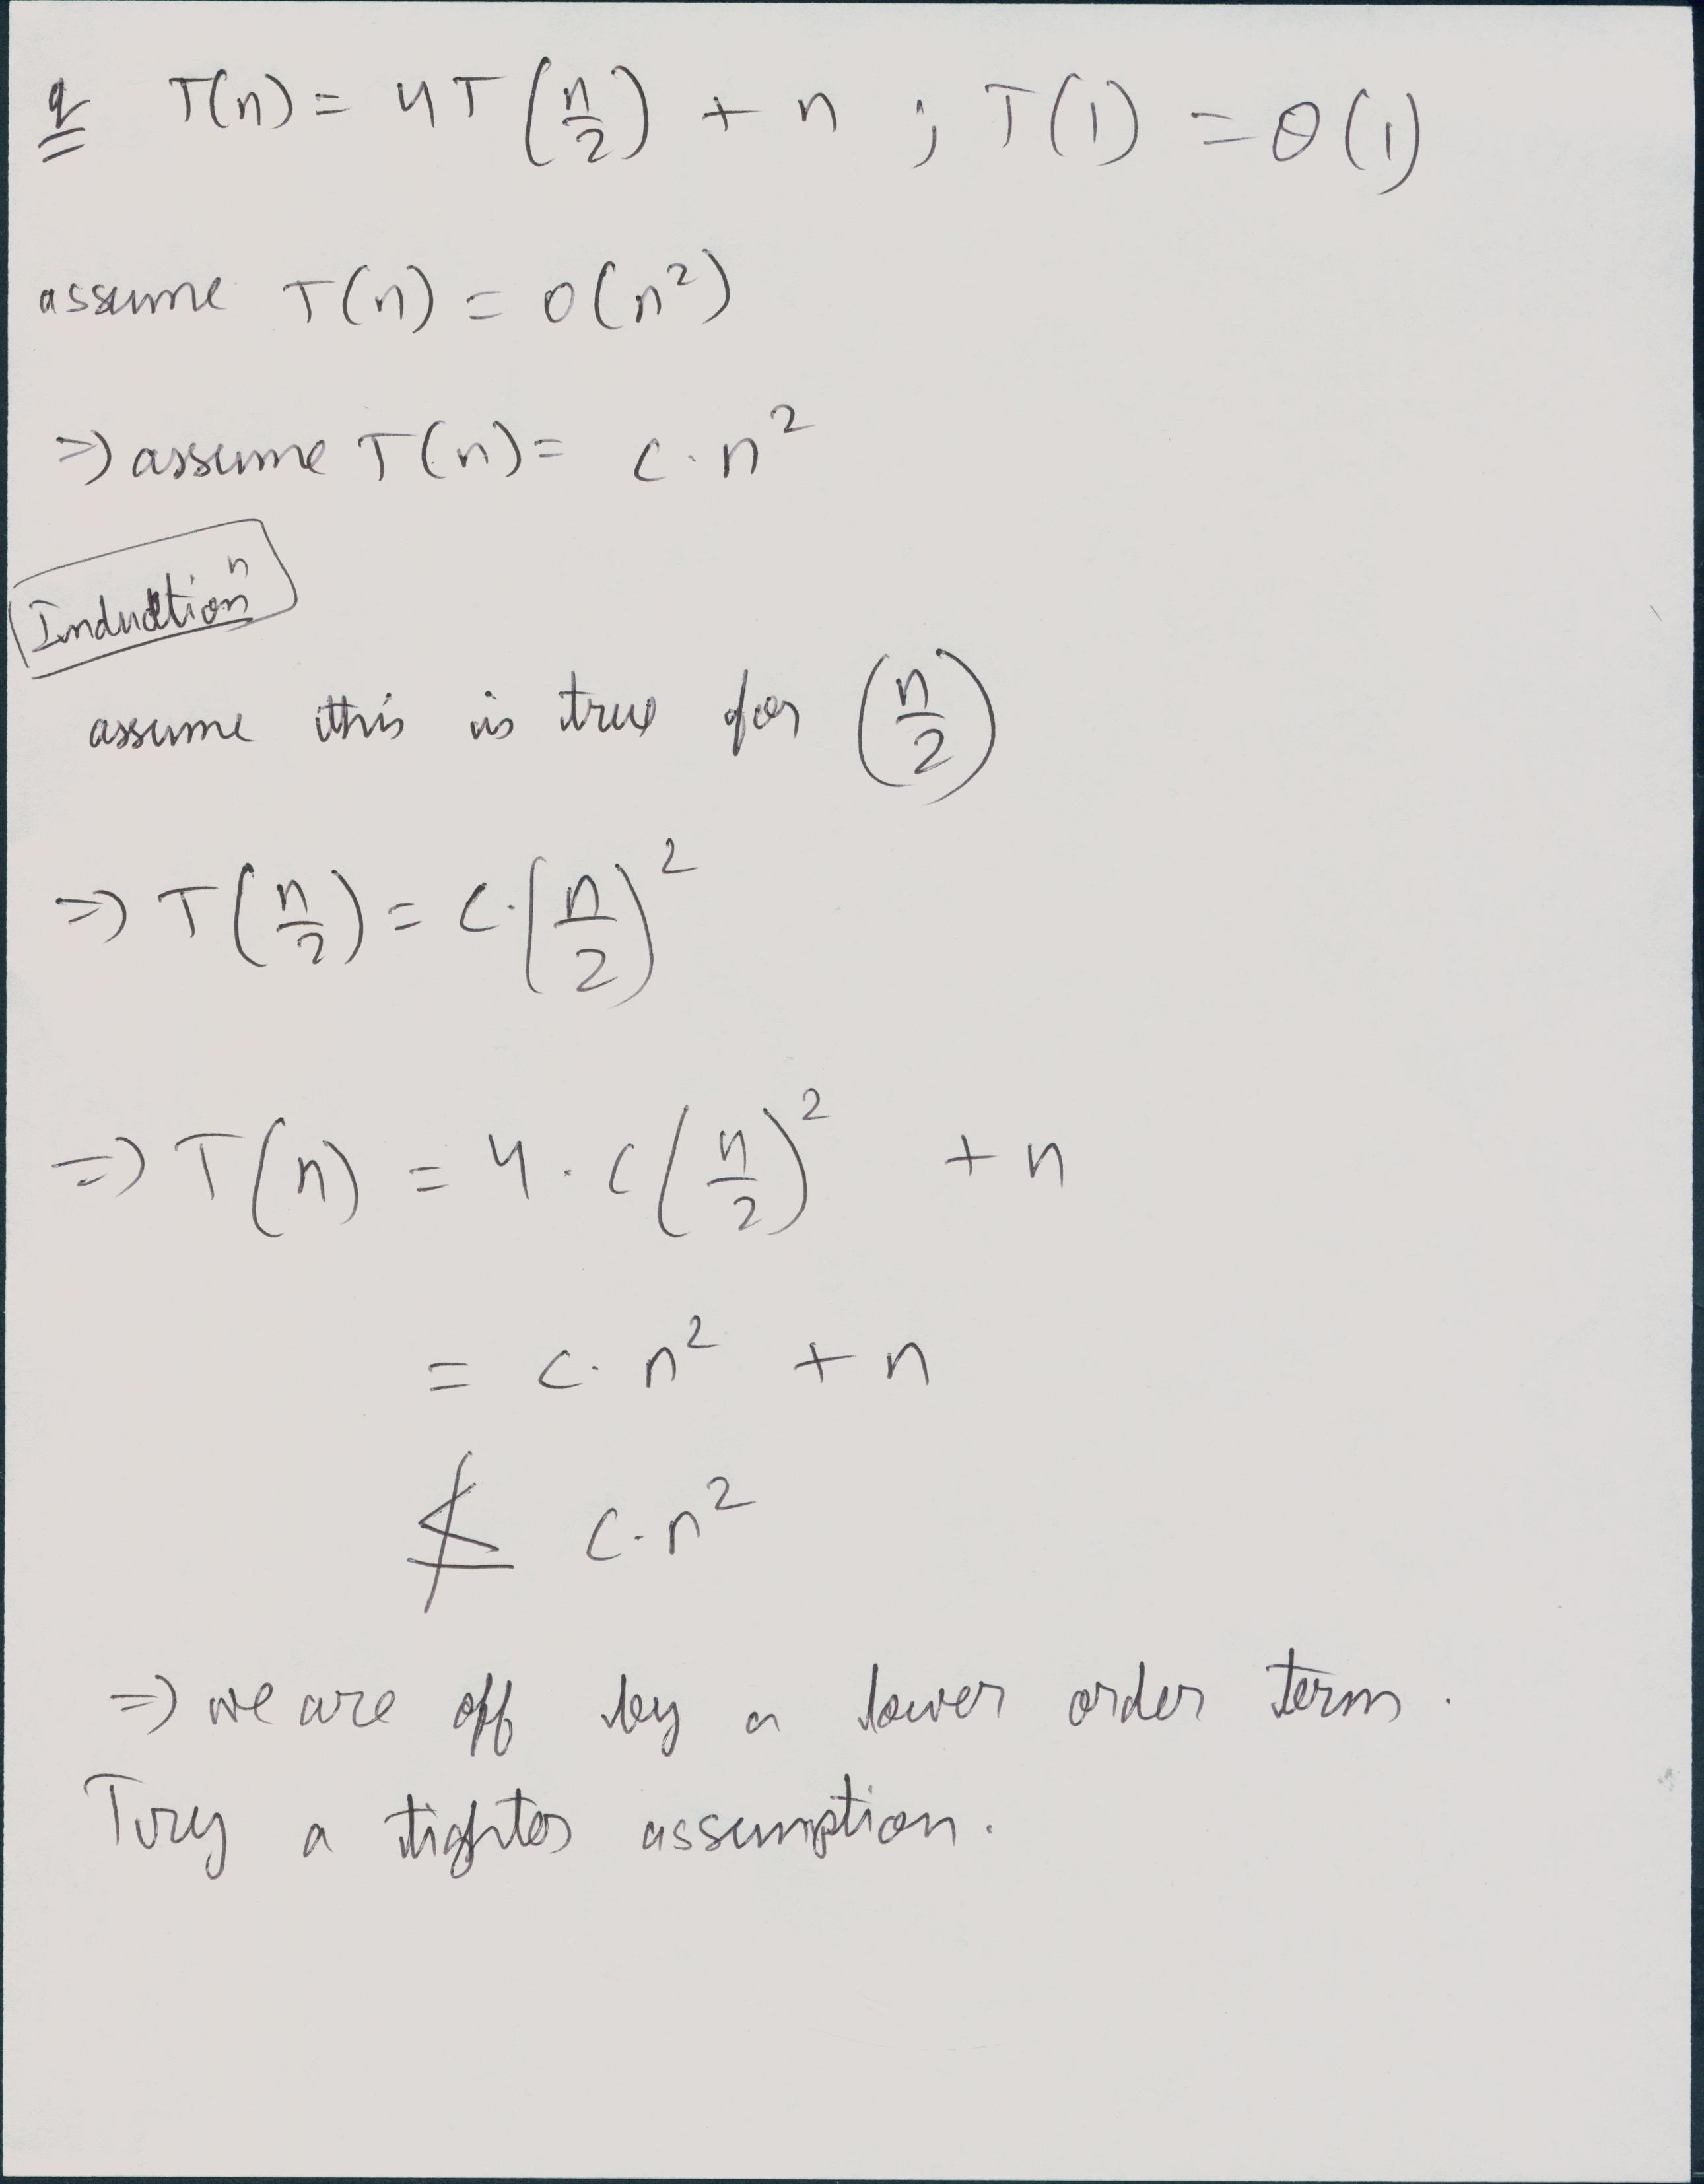 q T(n) = 4T(n/2) + n ; T(1) = θ(1)
assume T(n) = O(n²)
⇒ assume T(n) = c·n²
Induction n
assume this is true for (n/2)
⇒ T(n/2) = c·(n/2)²
⇒ T(n) = 4·c(n/2)² + n
= c·n² + n
≰ c·n²
⇒ we are off by a lower order term.
Try a tighter assumption.